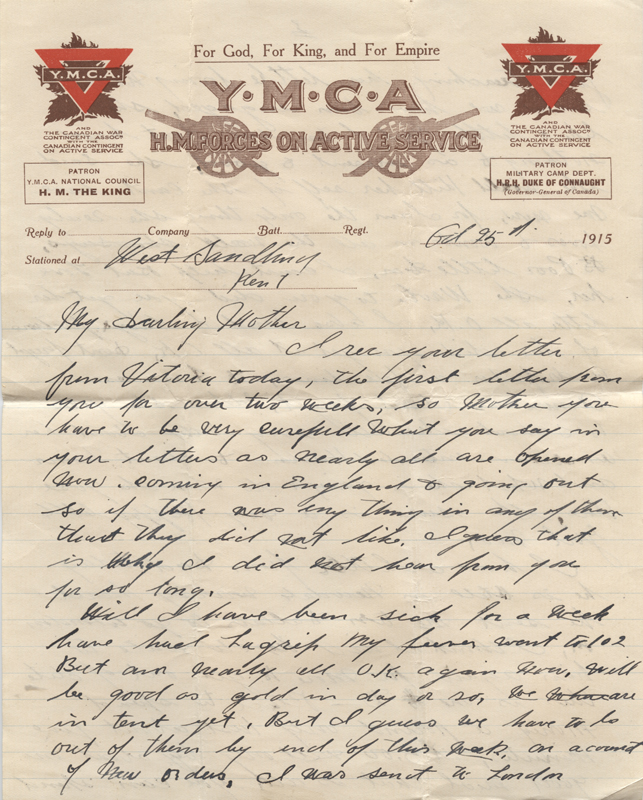 For God, For King, and For Empire
Y·M·C·A
H.M. FORCES ON ACTIVE SERVICE
Y.M.C.A.
AND
THE CANADIAN WAR
CONTINGENT ASSOCN
WITH THE
CANADIAN CONTINGENT
ON ACTIVE SERVICE
PATRON
Y.M.C.A. NATIONAL COUNCIL
H. M. THE KING
Y.M.C.A.
AND
THE CANADIAN WAR
CONTINGENT ASSOCN
WITH THE
CANADIAN CONTINGENT
ON ACTIVE SERVICE
PATRON
MILITARY CAMP DEPT.
H.R.H. DUKE OF CONNAUGHT
(Governor-General of Canada)
Reply to Company Batt. Regt.
25th 1915
Stationed at West Sandling
Kent
My Darling Mother
I rec your letter
from Victoria today, the first letter from
you for over two weeks, so Mother you
have to be very carefull what you say in
your letters as nearly all are opened
now. coming in England & going out
so if there was any thing in any of them
that they did not like. I guess that
is why I did not hear from you
for so long.
Well I have been sick for a week
have had Lagrip My fever went to 102
But am nearly all O.K. again now, will
be good as gold in day or so, We are
in tent yet. But I guess we have to be
out of them by end of this week. on account
of new orders, I was sent to London